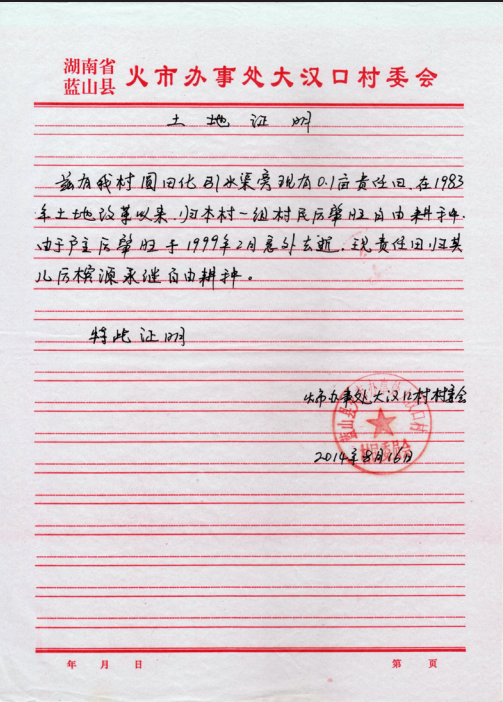 湖南省
蓝山县
火市办事处大汉口村委会
土地证明
兹有我村圆田化引水渠旁现有0.1亩责任田,在1983
年土地改革以来,归本村一组村民厉肇旺自由耕种,
由于户主厉肇旺于1999年2月意外去逝,现责任田归其
儿厉槟源承继自由耕种。
特此证明
火市办事处大汉口村村委会
2014年8月16日
年 月 日
第 页